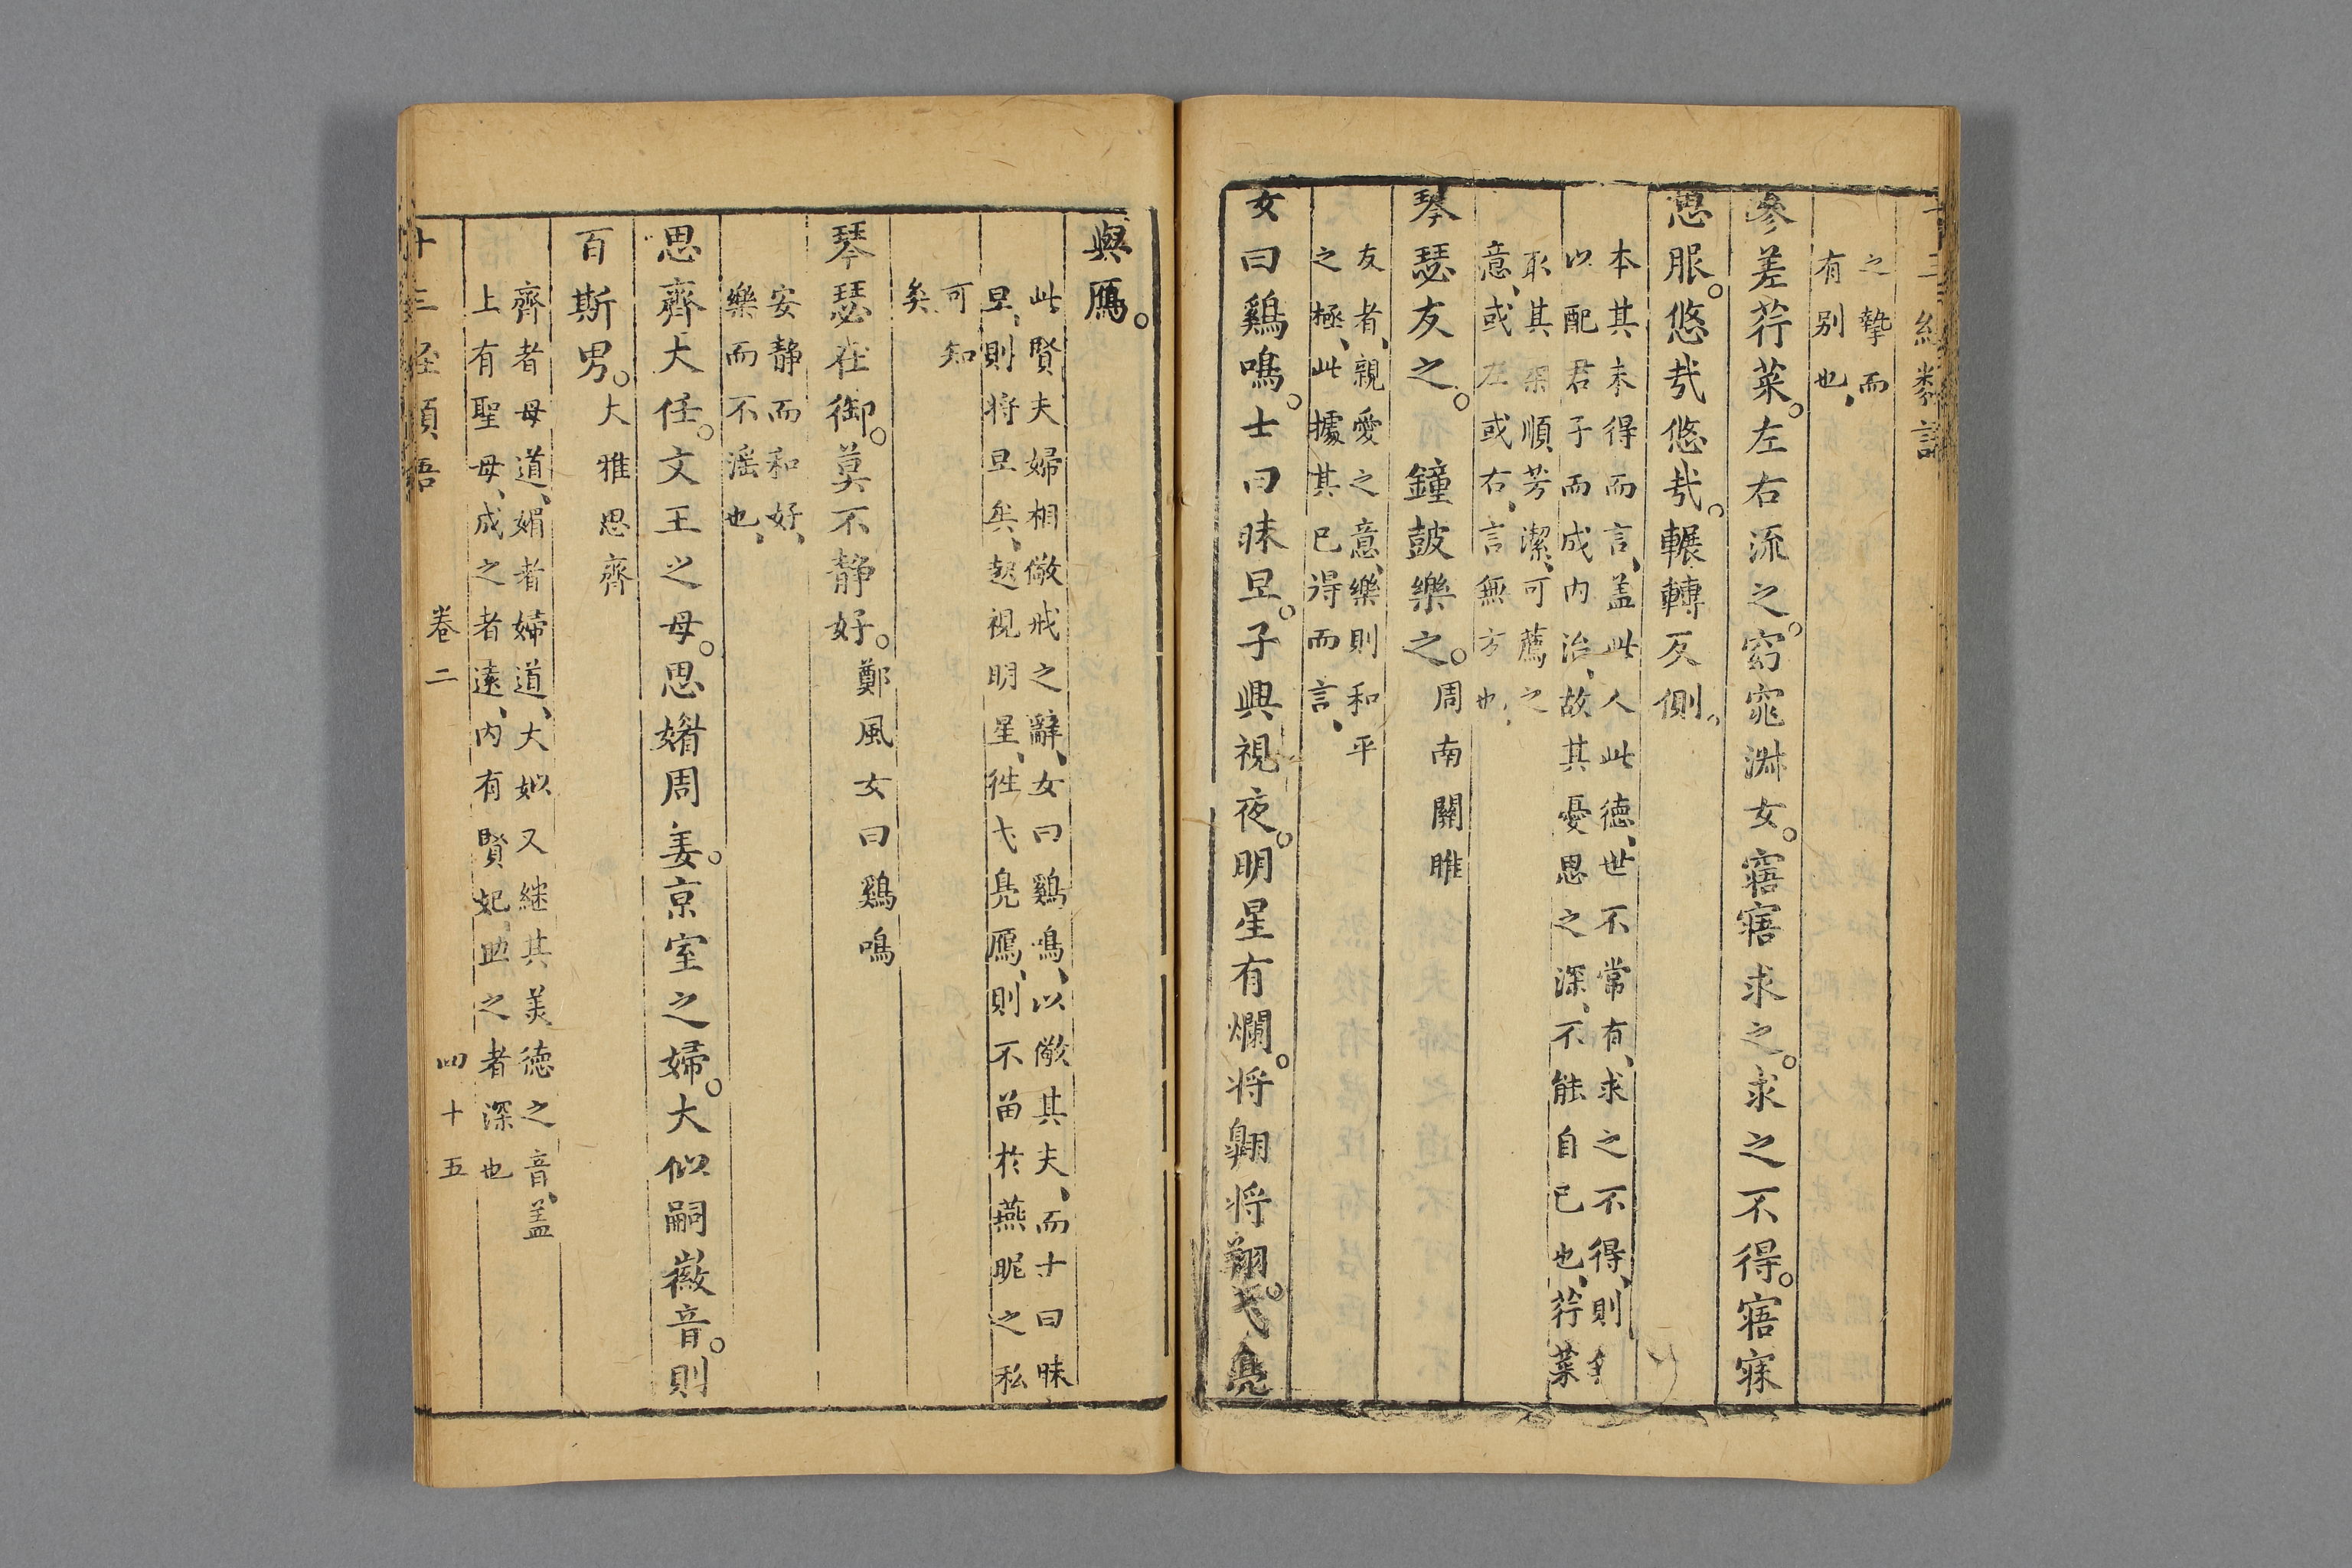 之摯而
有别也、
參差荇菜。左右流之。窈窕淑女。寤寤求之。求之不得。寤寐
思服。悠哉悠哉。輾轉反側。
本其未得而言、盖此人此德、世不常有、求之不得、則
以配君子而成内治、故其憂思之深、不能自已也、荇菜
取其柔順芳潔、可薦之
意、或左或右、言無方也、
琴瑟友之。鐘鼓樂之。周南關雎
友者、親愛之意、樂則和平
之極、此據其已得而言、
女曰鷄鳴。士曰昧旦。子興視夜。明星有爛。将翺将翔。弋鳧
與鴈。
此賢夫婦相儆戒之辭、女曰鷄鳴、以儆其夫、而士曰昧
旦、則将旦矣、起視明星、徃弋鳧鴈、則不畱於燕昵之私
可知
矣
琴瑟在御。莫不静好。鄭風女曰鷄鳴
安静而和好、
樂而不滛也、
思齊大任。文王之母。思媚周姜。京室之婦。大似嗣徽音。則
百斯男。大雅思齊
齊者母道、媚者婦道、大姒又継其美德之音、盖
上有聖母、成之者遠、内有賢妃、助之者深也
十三經類語 卷二 四十五